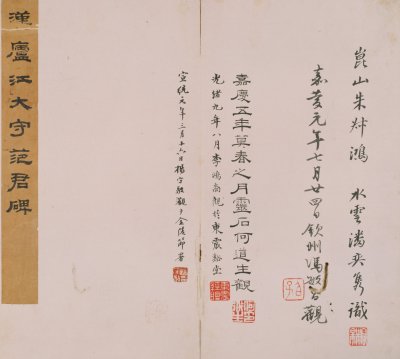 崑山朱㸁鴻 水雲潘奕雋識
嘉慶元年七月廿四日欽州馮敏昌觀
嘉慶五年莫春之月靈石何道生觀
光緒九年八月李鴻裔觀於東
宣統元年二月十六日楊守敬觀于金陵節署
漢廬江大守范君碑